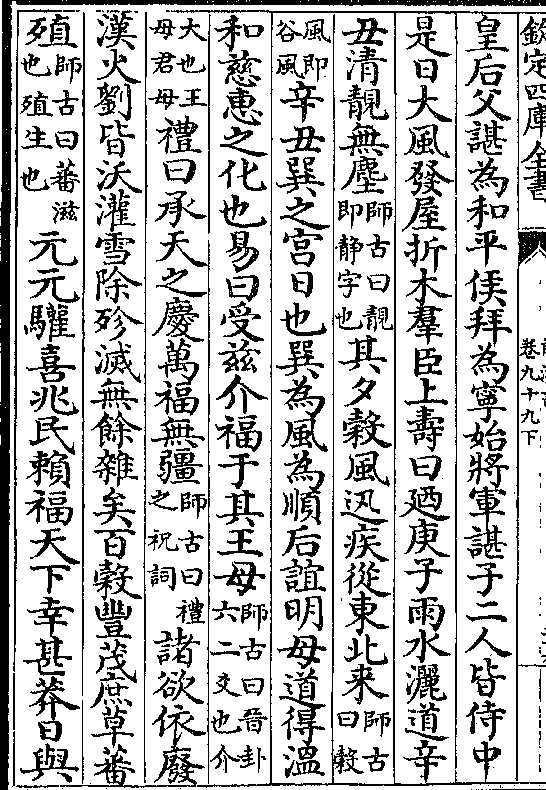 欽定四庫全書
卷九十九下
皇后父諶為和平侯拜為寧始將軍諶子二人皆侍中
是日大風發屋折木羣臣上壽曰廼庚子雨水灑道辛
丑清靚無塵師古曰靚即静字也其夕穀風迅疾從東北来師古曰穀
風即谷風辛丑巽之宫日也巽為風為順后誼明母道得溫
和慈惠之化也易曰受兹介福于其王母師古曰晉卦六二爻也介
大也王母君母禮曰承天之慶萬福無疆師古曰禮之祝詞諸欲依廢
漢火劉皆沃灌雪除殄滅無餘雜矣百穀豐茂庶草蕃
殖師古曰蕃滋也殖生也元元驩喜兆民賴福天下幸甚莽日與